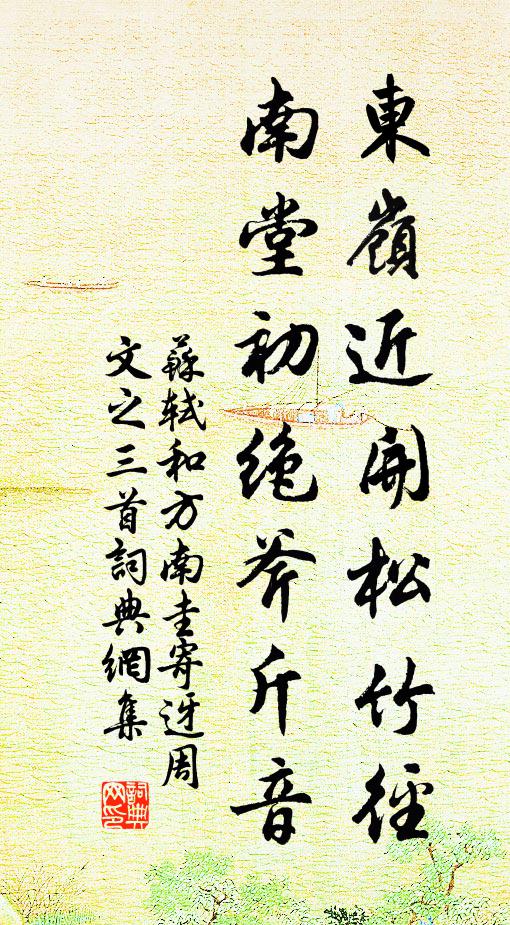 東嶺近開松竹徑
南堂初絶斧斤音
蘇軾和方南圭寄迓周
文之三首詞典網集
詞典
网印